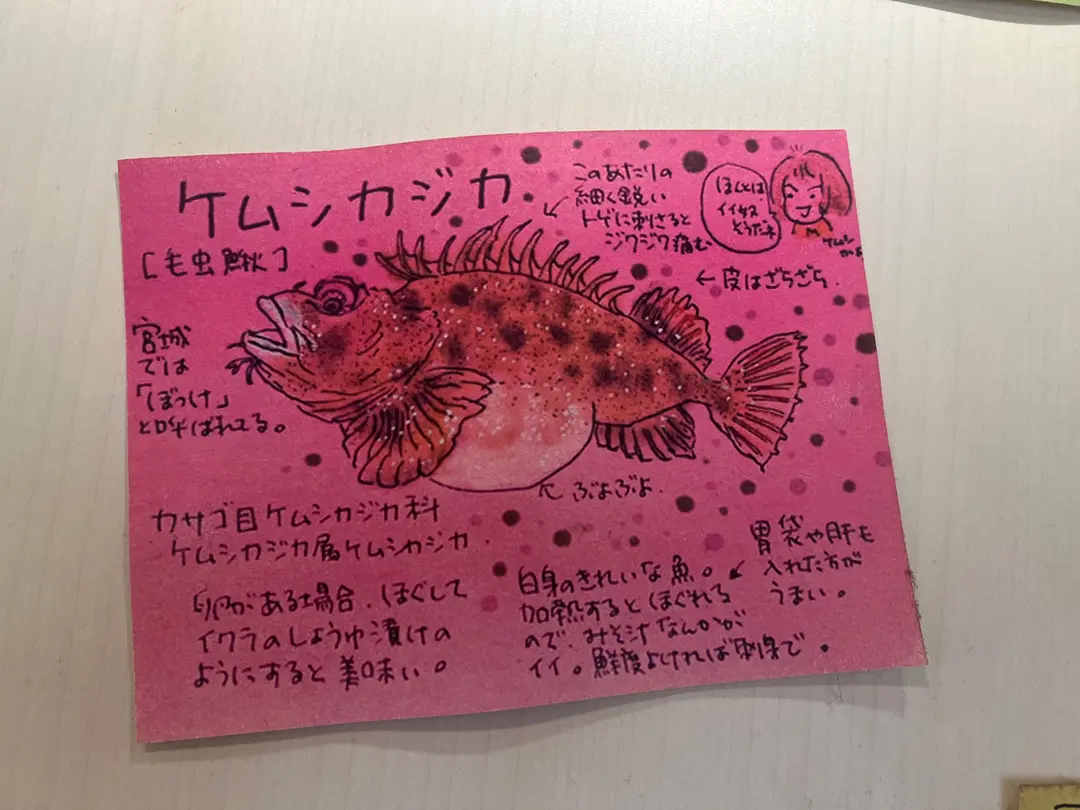 ケムシカジカ
[毛虫鰍]
このあたりの
細く鋭い
トゲに刺さると
ジクジク痛む
ほんとは
イイヤツ
そうだね
ケムシ
← 皮はざらざら.
宮城
では
「ぼっけ」
と呼ばれてる。
ぶよぶよ.
カサゴ目ケムシカジカ科
ケムシカジカ属ケムシカジカ.
卵がある場合、ほぐして
イクラのしょうゆ漬けの
ようにすると美味い。
白身のきれいな魚。
加熱するとほぐれる
ので、みそ汁なんかが
イイ。鮮度よければ刺身で。
胃袋や肝も
入れた方が
うまい。